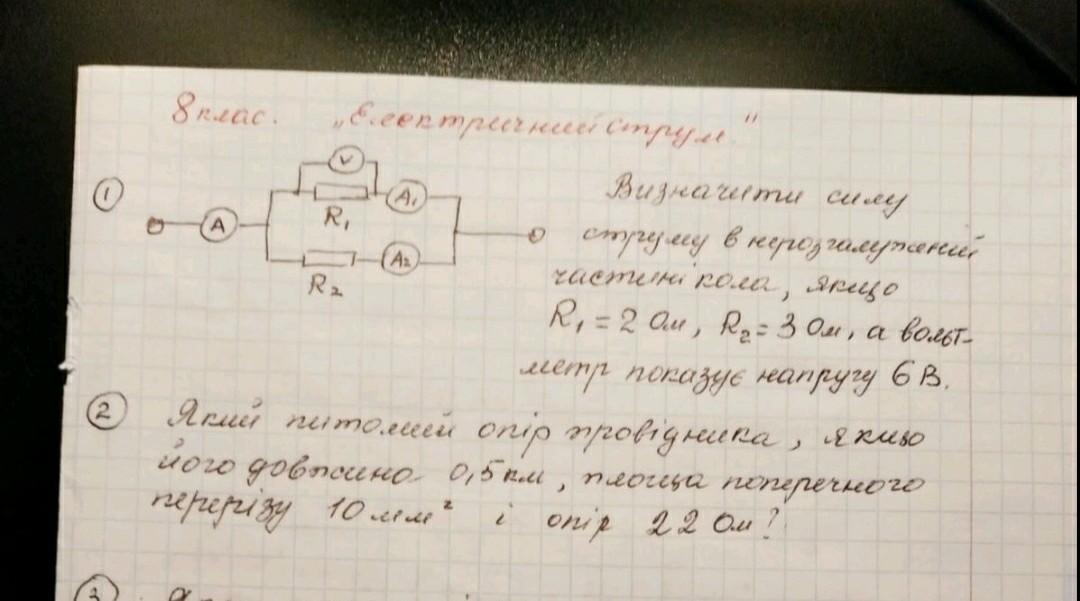 8 клас. „Електричний струм."
①
V
A
R₁
A₁
R₂
A₂
Визначити силу
струму в нерозгалуженій
частині кола, якщо
R₁ = 2 Ом, R₂ = 3 Ом, а вольт-
метр показує напругу 6 В.
② Який питомий опір провідника, якщо
його довжина 0,5 км, площа поперечного
перерізу 10 мм² і опір 22 Ом?
③